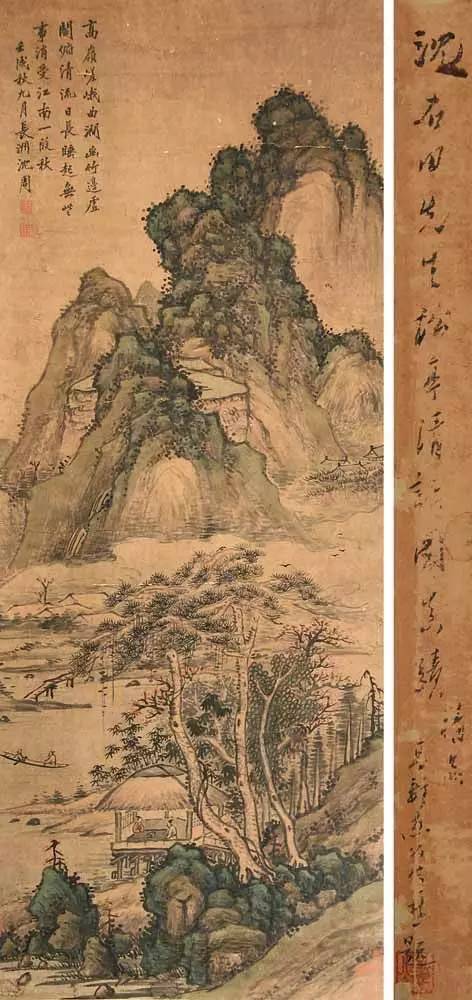 高嶺嵯峨曲澗幽竹邊虛
閣俯清流日長睡起無些
事消受江南一段秋
壬戌秋九月長洲沈周
沈石田先生松亭清話圖真蹟